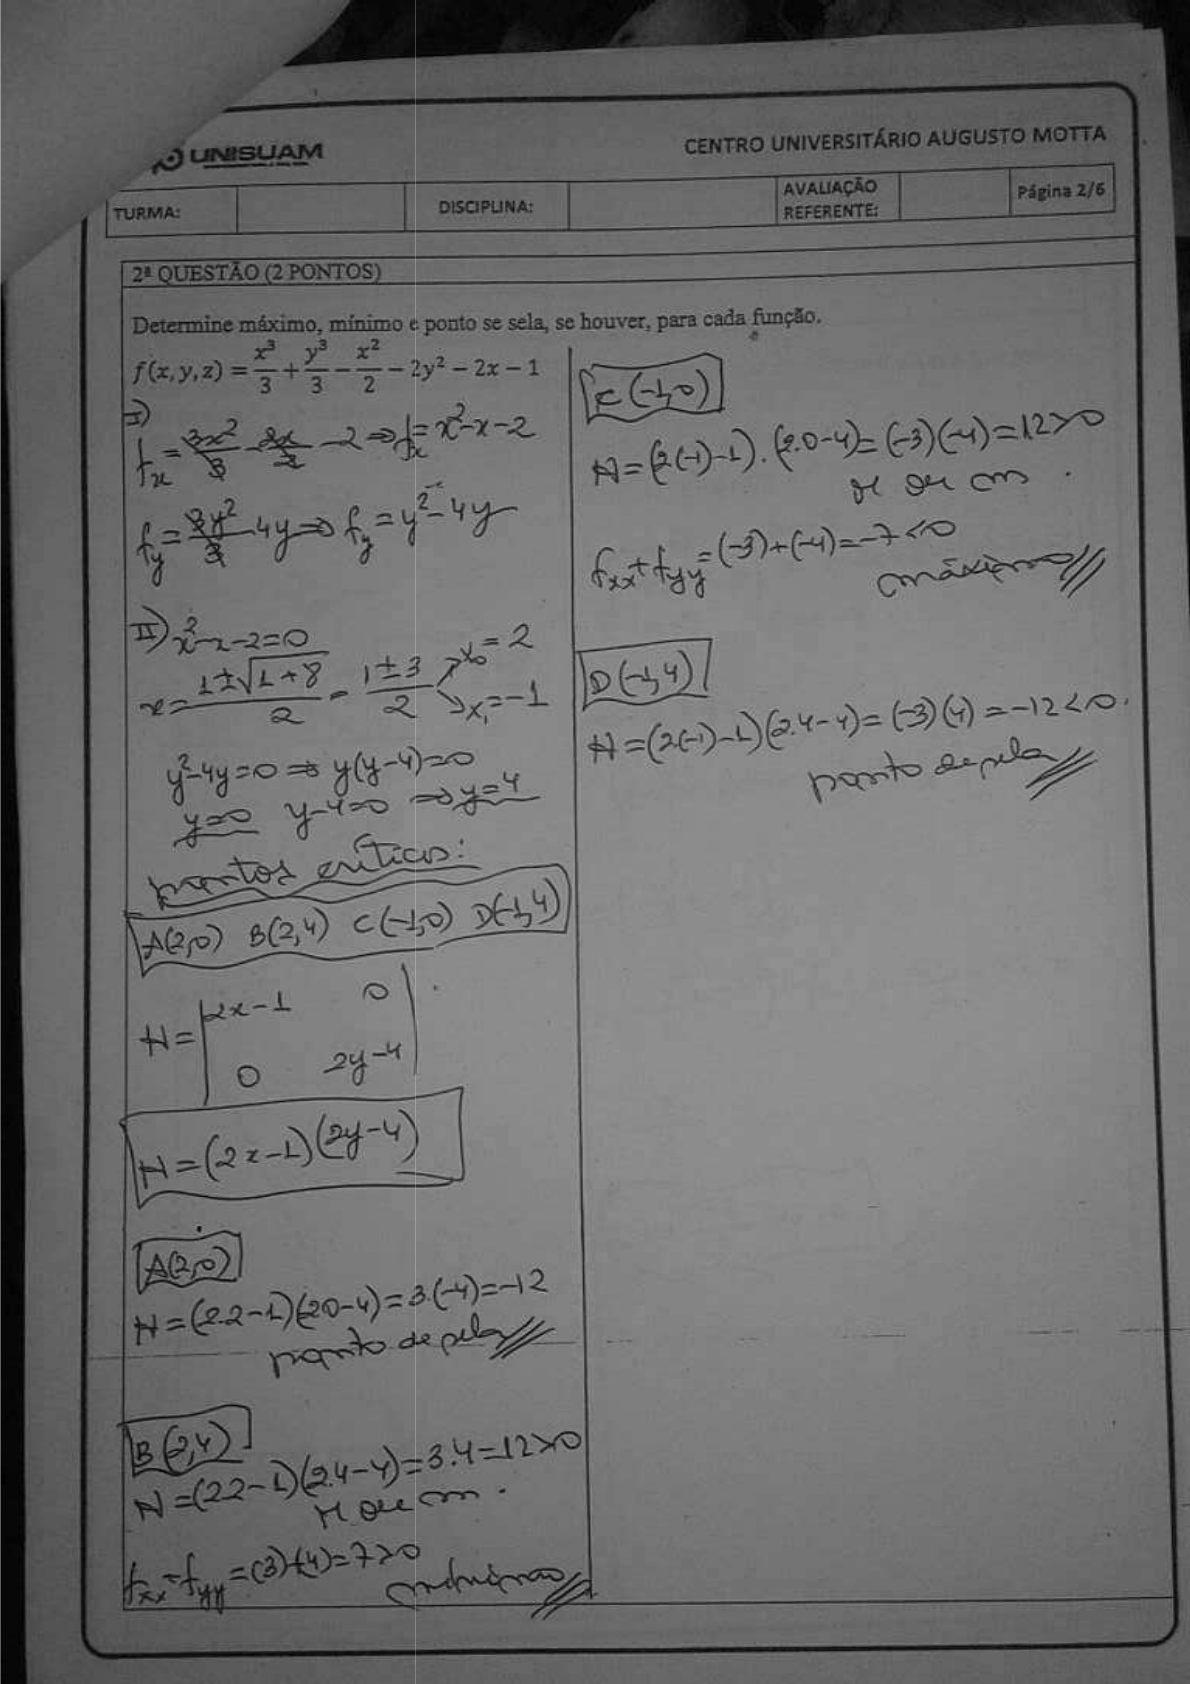 UNISUAM
CENTRO UNIVERSITÁRIO AUGUSTO MOTTA
TURMA:
DISCIPLINA:
AVALIAÇÃO
REFERENTE:
Página 2/6
2ª QUESTÃO (2 PONTOS)
Determine máximo, mínimo e ponto se sela, se houver, para cada função.
f(x, y, z) = x³/3 + y³/3 − x²/2 − 2y² − 2x − 1
I)
fx = 3x²/3 − 2x/2 − 2 ⇒ fx = x² − x − 2
fy = 3y²/3 − 4y ⇒ fy = y² − 4y
II) x² − x − 2 = 0
x = (1 ± √(1+8))/2 = (1 ± 3)/2
x₀ = 2
x₁ = −1
y² − 4y = 0 ⇒ y(y − 4) = 0
y = 0 y − 4 = 0 ⇒ y = 4
pontos críticos:
A(2,0) B(2,4) C(−1,0) D(−1,4)
H = | 2x − 1 0 |
0 2y − 4
H = (2x − 1)(2y − 4)
A(2,0)
H = (2.2 − 1)(2.0 − 4) = 3.(−4) = −12
ponto de sela
B(2,4)
H = (2.2 − 1)(2.4 − 4) = 3.4 = 12 > 0
M ou m.
fxx + fyy = (3) + (4) = 7 > 0
mínimo
C(−1,0)
H = (2(−1) − 1).(2.0 − 4) = (−3)(−4) = 12 > 0
M ou m.
fxx + fyy = (−3) + (−4) = −7 < 0
máximo
D(−1,4)
H = (2(−1) − 1)(2.4 − 4) = (−3)(4) = −12 < 0.
ponto de sela